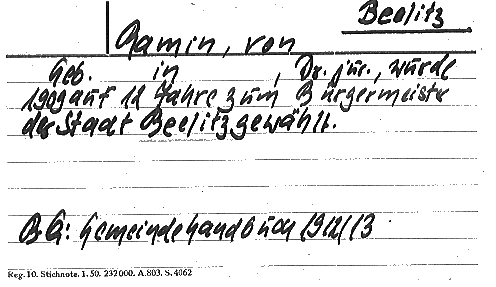 Beelitz
Gamin, von
Geb. in , Dr. jur., wurde
1909 auf 12 Jahre zum Bürgermeister
der Stadt Beelitz gewählt.
BG: Gemeindehandbuch 1912/13
Reg. 10. Stichnote. 1. 50. 232000. A.803. S. 4062